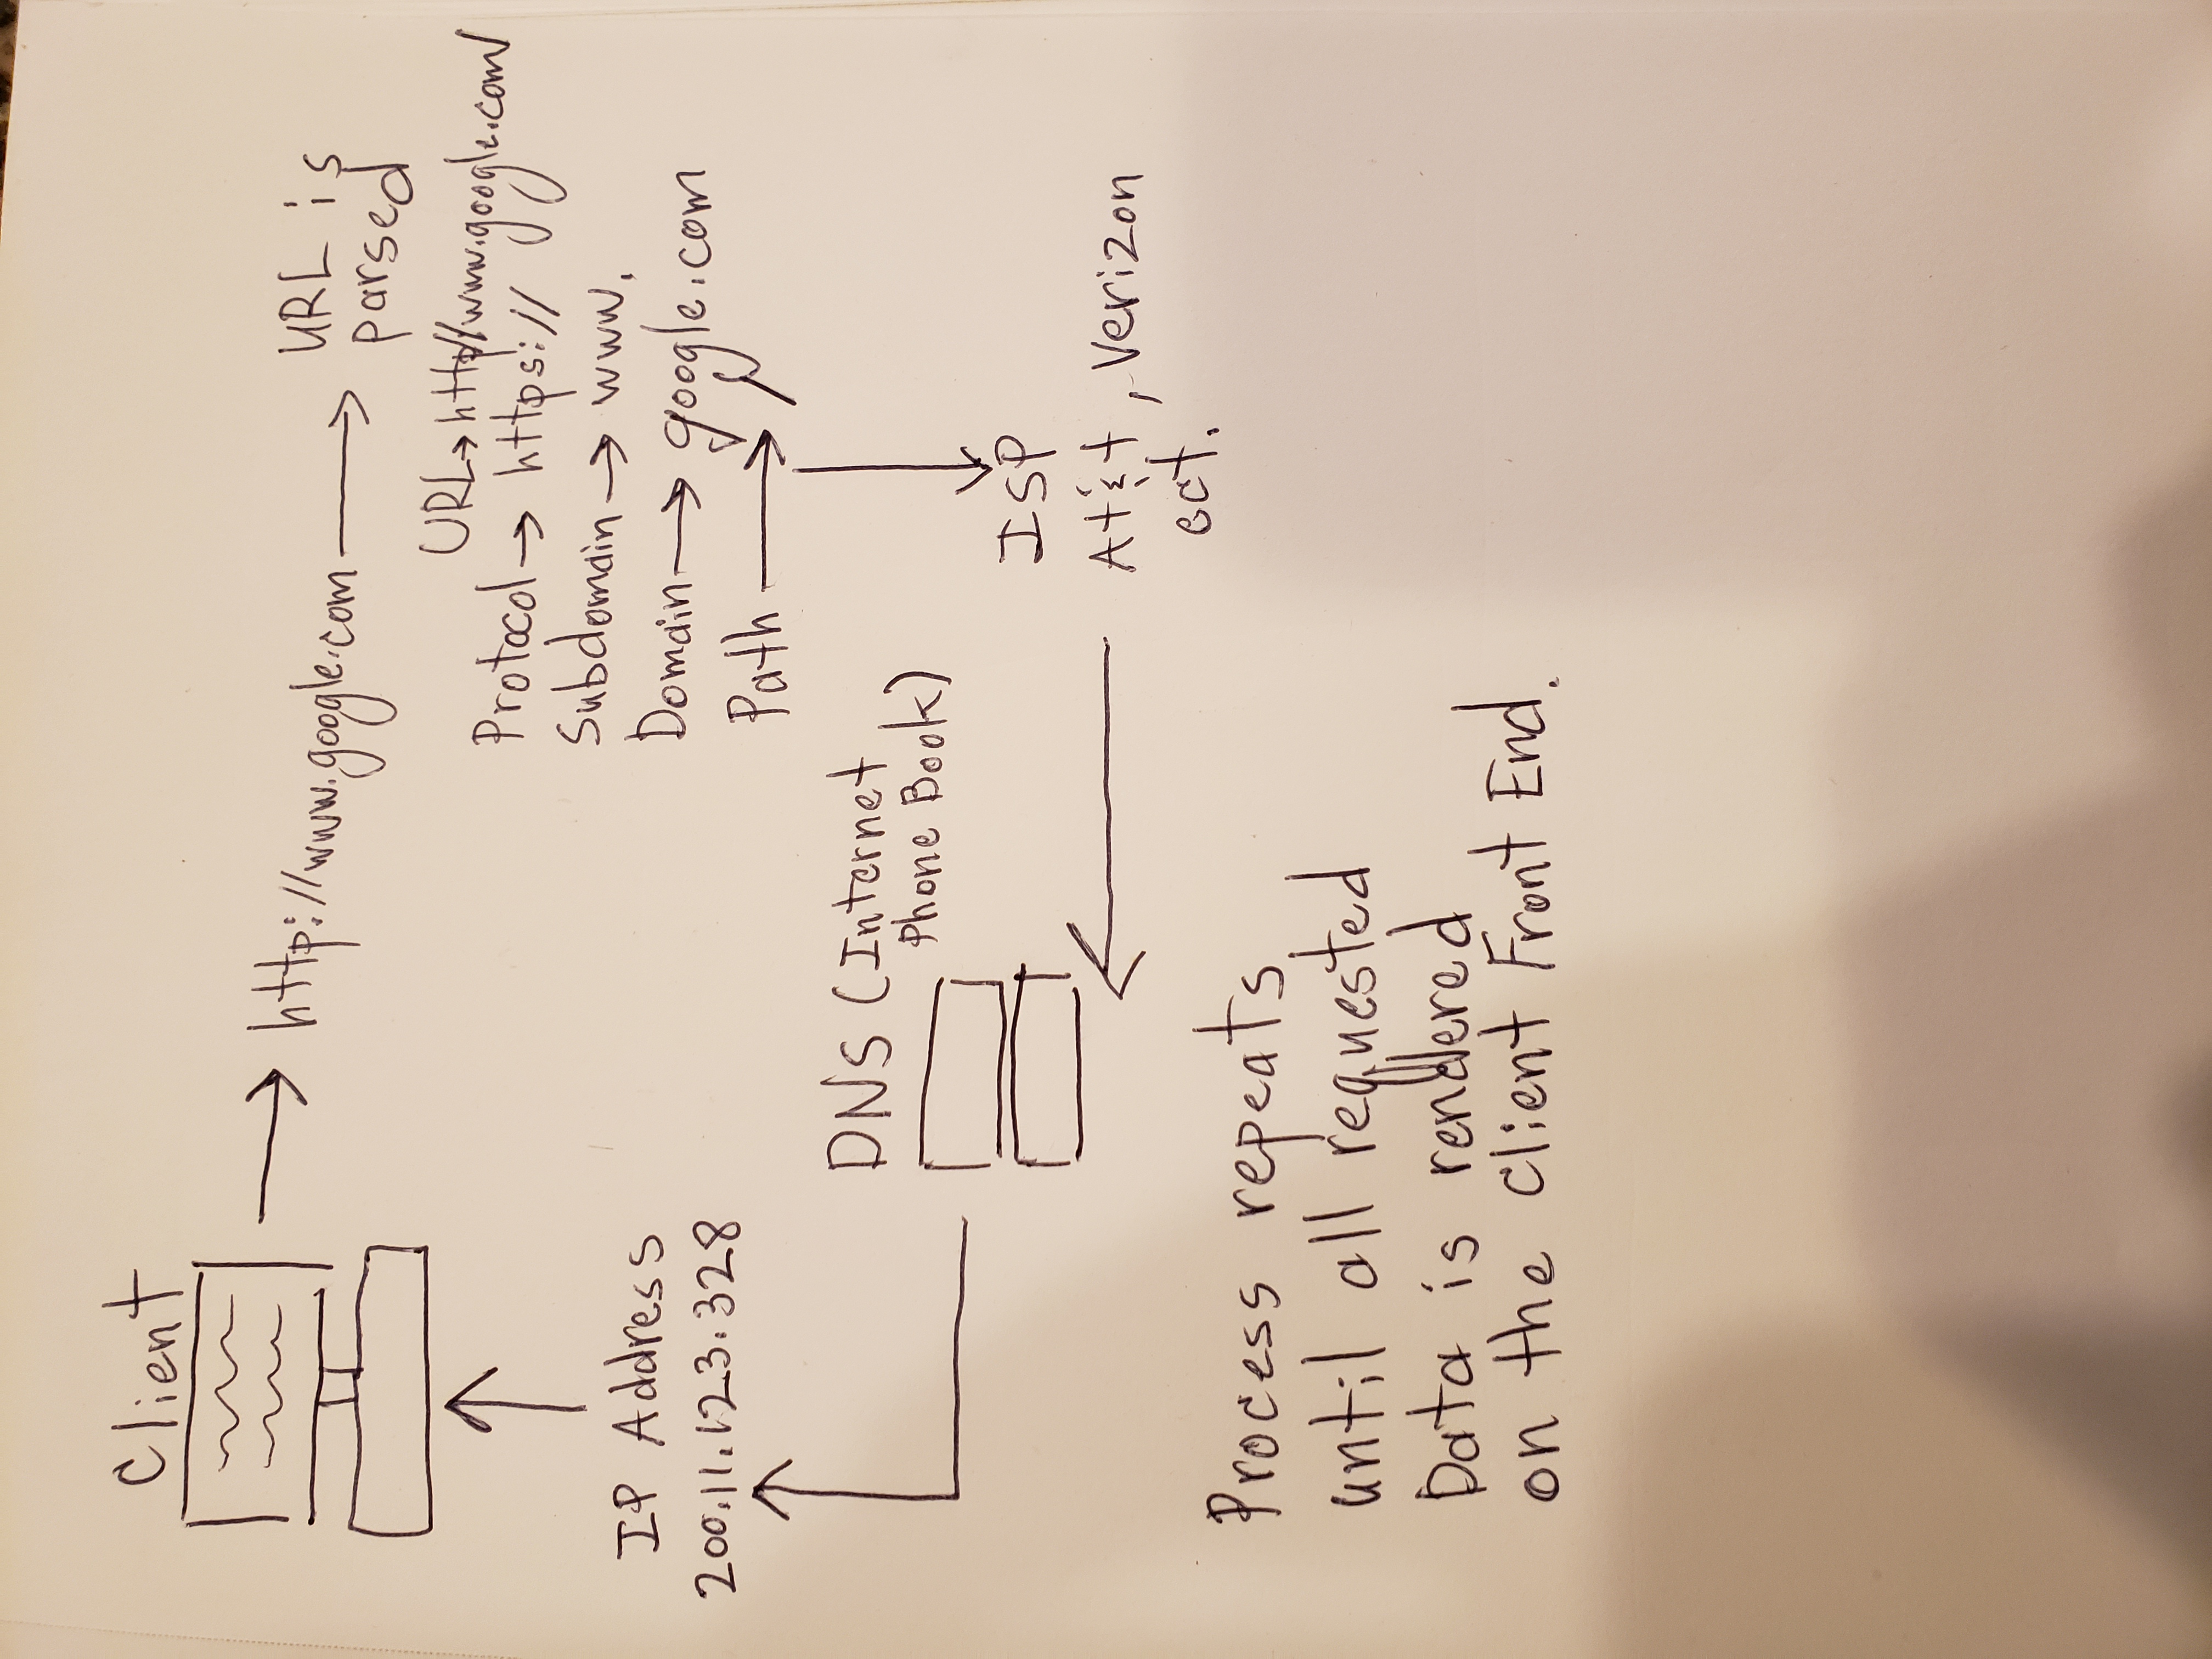 Client
http://www.google.com
URL is
parsed
URL→http//www.google.com/
Protocol→ https://
Subdomain→ www.
Domain→ google.com
Path → /
IP Address
200.11.123.328
DNS (Internet
Phone Book)
ISP
At&t, Verizon
ect.
Process repeats
until all requested
Data is rendered
on the Client Front End.